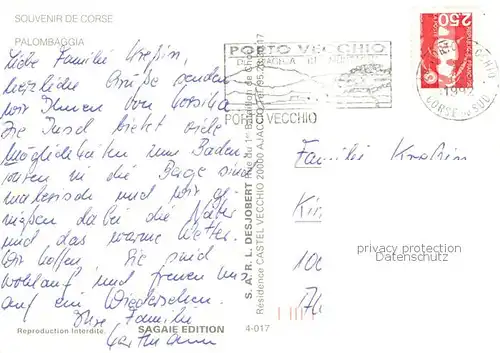 SOUVENIR DE CORSE
PALOMBAGGIA
Liebe Familie Kreßin,
herzliche Grüße senden
wir Ihnen von Korsika
Die Insel bietet viele
Möglichkeiten zum Baden
in die Berge sind
malerisch und wir ge-
nießen dabei die Natur
und das warme Wetter.
Wir hoffen, Sie sind
wohlauf und freuen uns
auf ein Wiedersehen.
Ihre Familie
Hartmann
Reproduction Interdite.
SAGAIE EDITION
4-017
S. A. R. L. DESJOBERT Rue du 1er Bataillon de Choc
Résidence CASTEL VECCHIO 20000 AJACCIO Tél 95.
PORTO VECCHIO
PORTO VECCHIO
2,50
1992
CORSE DU SUD
Familie Kreßin
privacy protection
Datenschutz